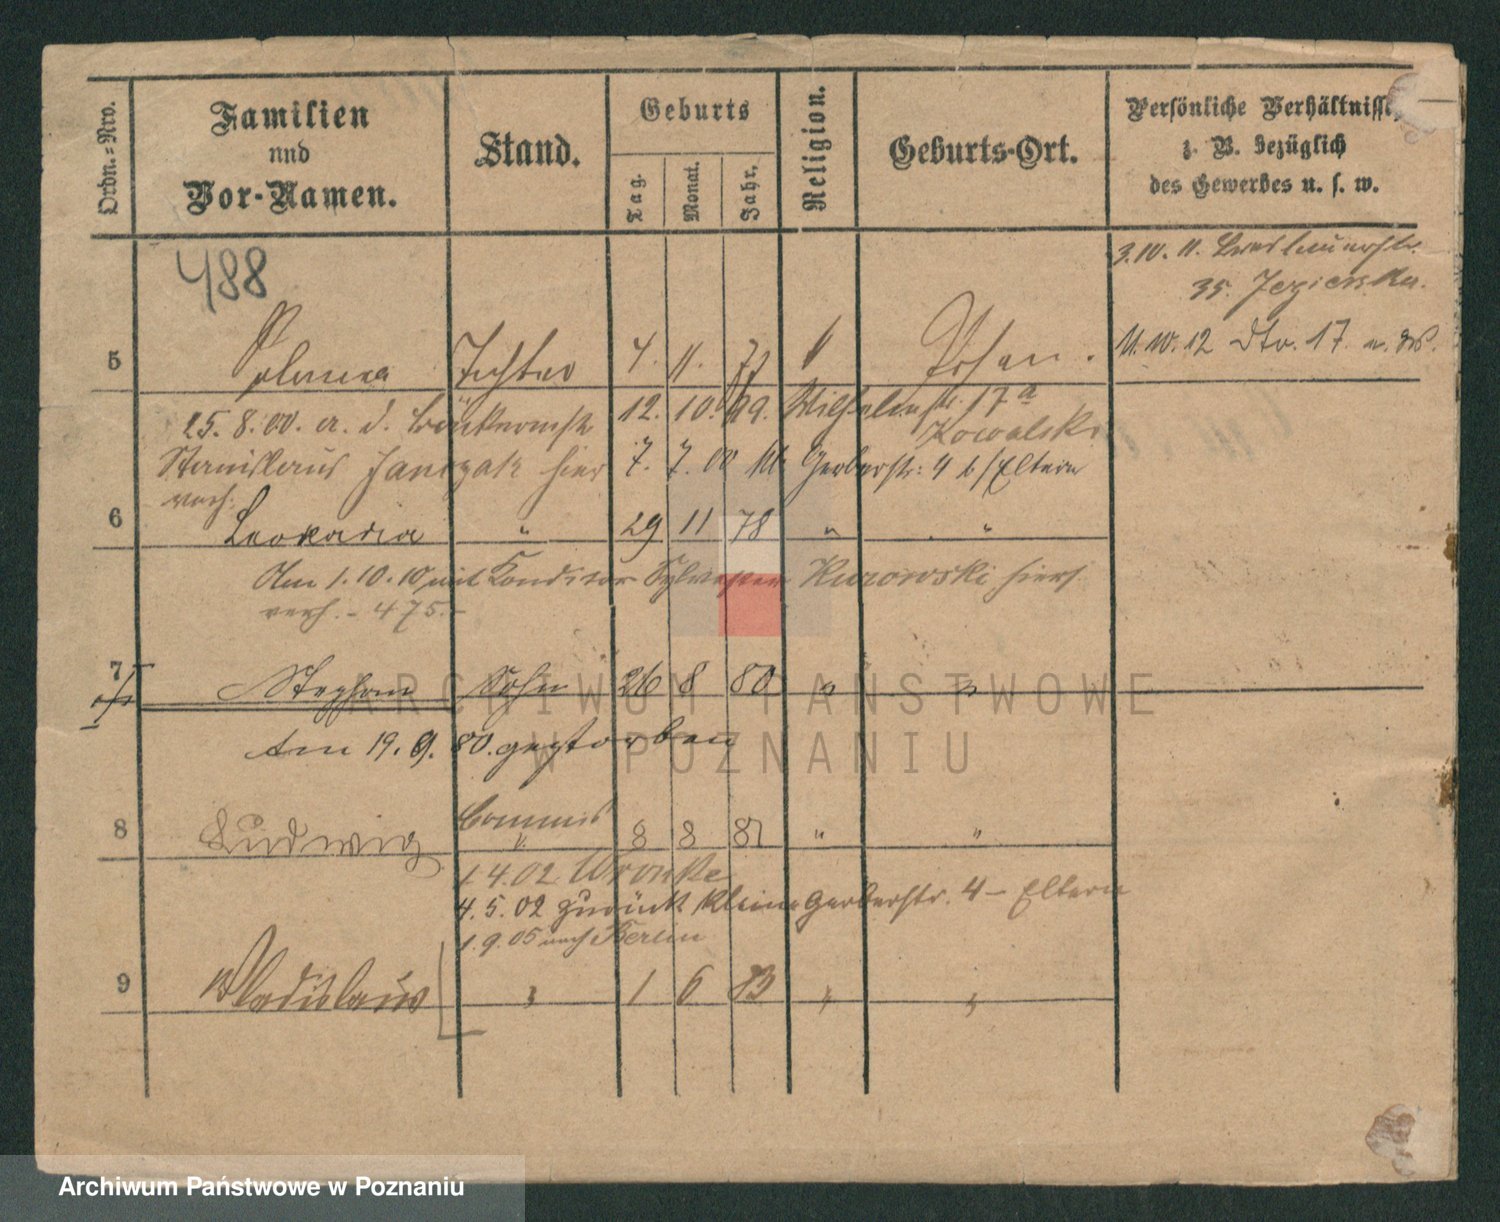 Ordn.-Nro.
Familien
und
Vor-Namen.
Stand.
Geburts
Tag.
Monat.
Jahr.
Religion.
Geburts-Ort.
Persönliche Verhältnisse,
z. B. bezüglich
des Gewerbes u. s. w.
488
3.10. 11. Breslauerstr.
35. Jezierska.
5 Tochter 4. 11. 77 " Posen.
11.10.12 dto. 17.
25. 8. 00. 12. 10. 99. Wilhelmstr. 17a
Kowalski
Stanislaus Janczak hier 7. 7. 00 Gerberstr. 4 b/Eltern
verh.
6 Leokadia " 29 11 78 " "
Am 1.10.10 mit Konditor Sylvester Kurowski hiers.
verh. - 475.-
7 Stephan Sohn 26 8 80 " "
Am 19. 9. 80. gestorben
Commis
8 Ludwig " 8 8 81 " "
1.4.02 Wronke
4.5.02 zurück Kleine Gerberstr. 4 - Eltern
1.9.05 nach Berlin
9 Wladislaus " 1 6 83 " "
ARCHIWUM PAŃSTWOWE
W POZNANIU
Archiwum Państwowe w Poznaniu